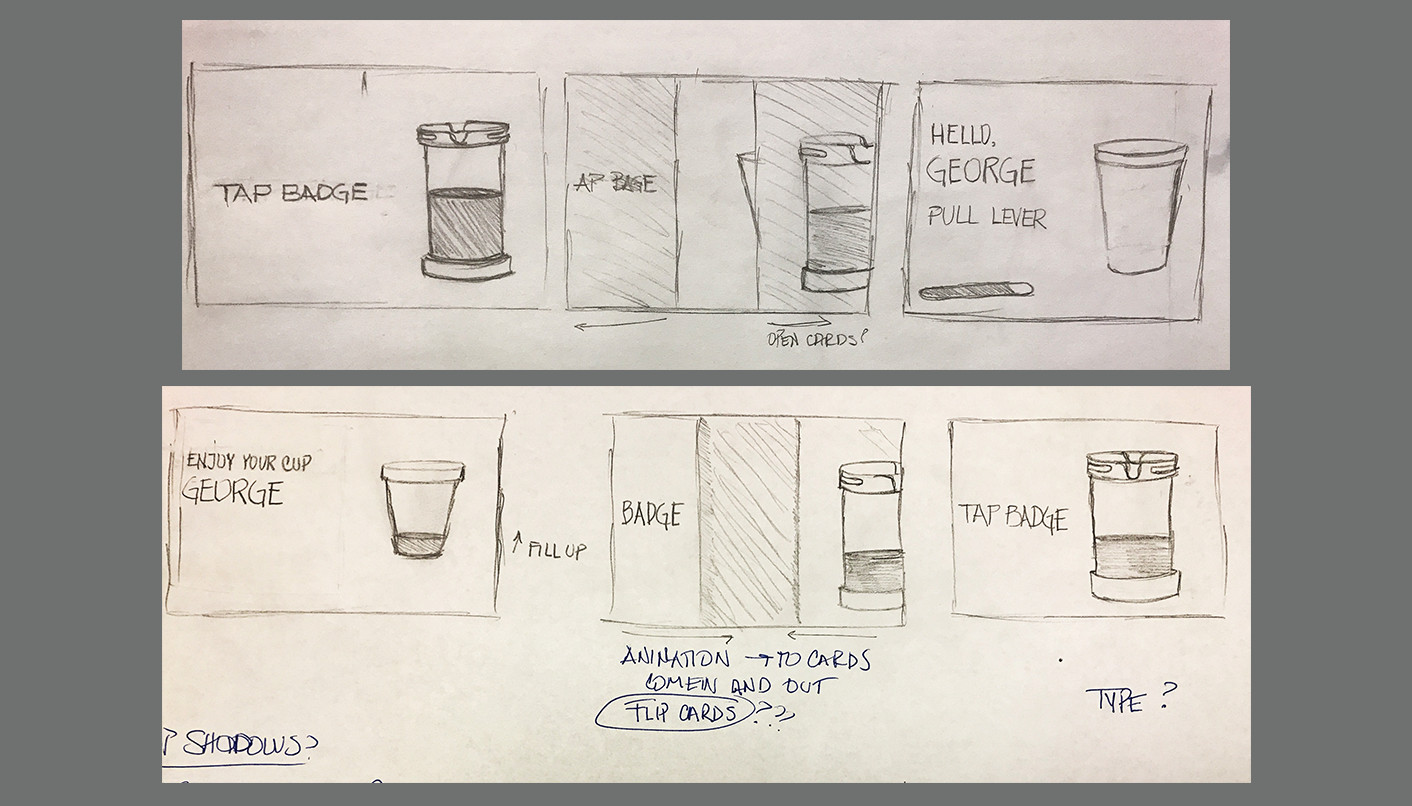 TAP BADGE
AP BAGE
OPEN CARDS?
HELLO,
GEORGE
PULL LEVER
ENJOY YOUR CUP
GEORGE
↑ FILL UP
BADGE
ANIMATION → TO CARDS
COME IN AND OUT
FLIP CARDS ???
TAP BADGE
TYPE ?
? SHADOWS?